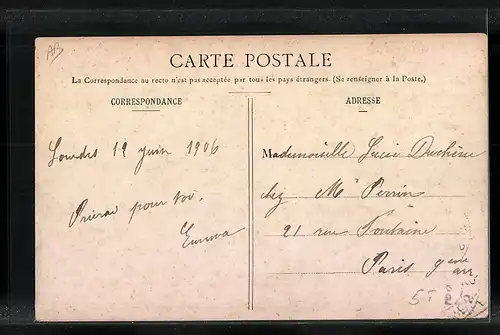 AB
CARTE POSTALE
La Correspondance au recto n'est pas acceptée par tous les pays étrangers. (Se renseigner à la Poste.)
CORRESPONDANCE
ADRESSE
Lourdes 19 juin 1906
Prierai pour toi.
Emma
Mademoiselle Lucie Duchêne
chez Mr Perrin
21 rue Fontaine
Paris 9eme
arr